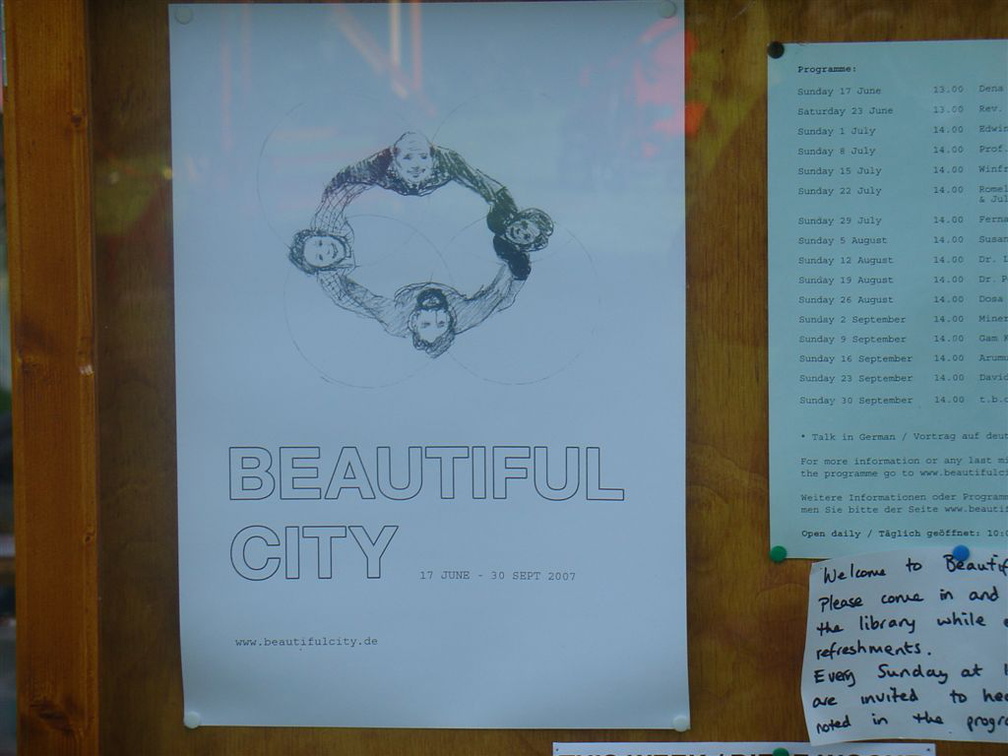 BEAUTIFUL
CITY
17 JUNE - 30 SEPT 2007
www.beautifulcity.de
Programme:
Sunday 17 June 13.00 Dena
Saturday 23 June 13.00 Rev.
Sunday 1 July 14.00 Edwin
Sunday 8 July 14.00 Prof.
Sunday 15 July 14.00 Winfr
Sunday 22 July 14.00 Romel
& Jul
Sunday 29 July 14.00 Ferna
Sunday 5 August 14.00 Susan
Sunday 12 August 14.00 Dr. L
Sunday 19 August 14.00 Dr. P
Sunday 26 August 14.00 Dosa
Sunday 2 September 14.00 Miner
Sunday 9 September 14.00 Gam
Sunday 16 September 14.00 Arumu
Sunday 23 September 14.00 David
Sunday 30 September 14.00 t.b.c
* Talk in German / Vortrag auf deut
For more information or any last mi
the programme go to www.beautifulci
Weitere Informationen oder Programm
men Sie bitte der Seite www.beautif
Open daily / Täglich geöffnet: 10:0
Welcome to Beautif
Please come in and
the library while
refreshments.
Every Sunday at 1
are invited to hea
noted in the progra